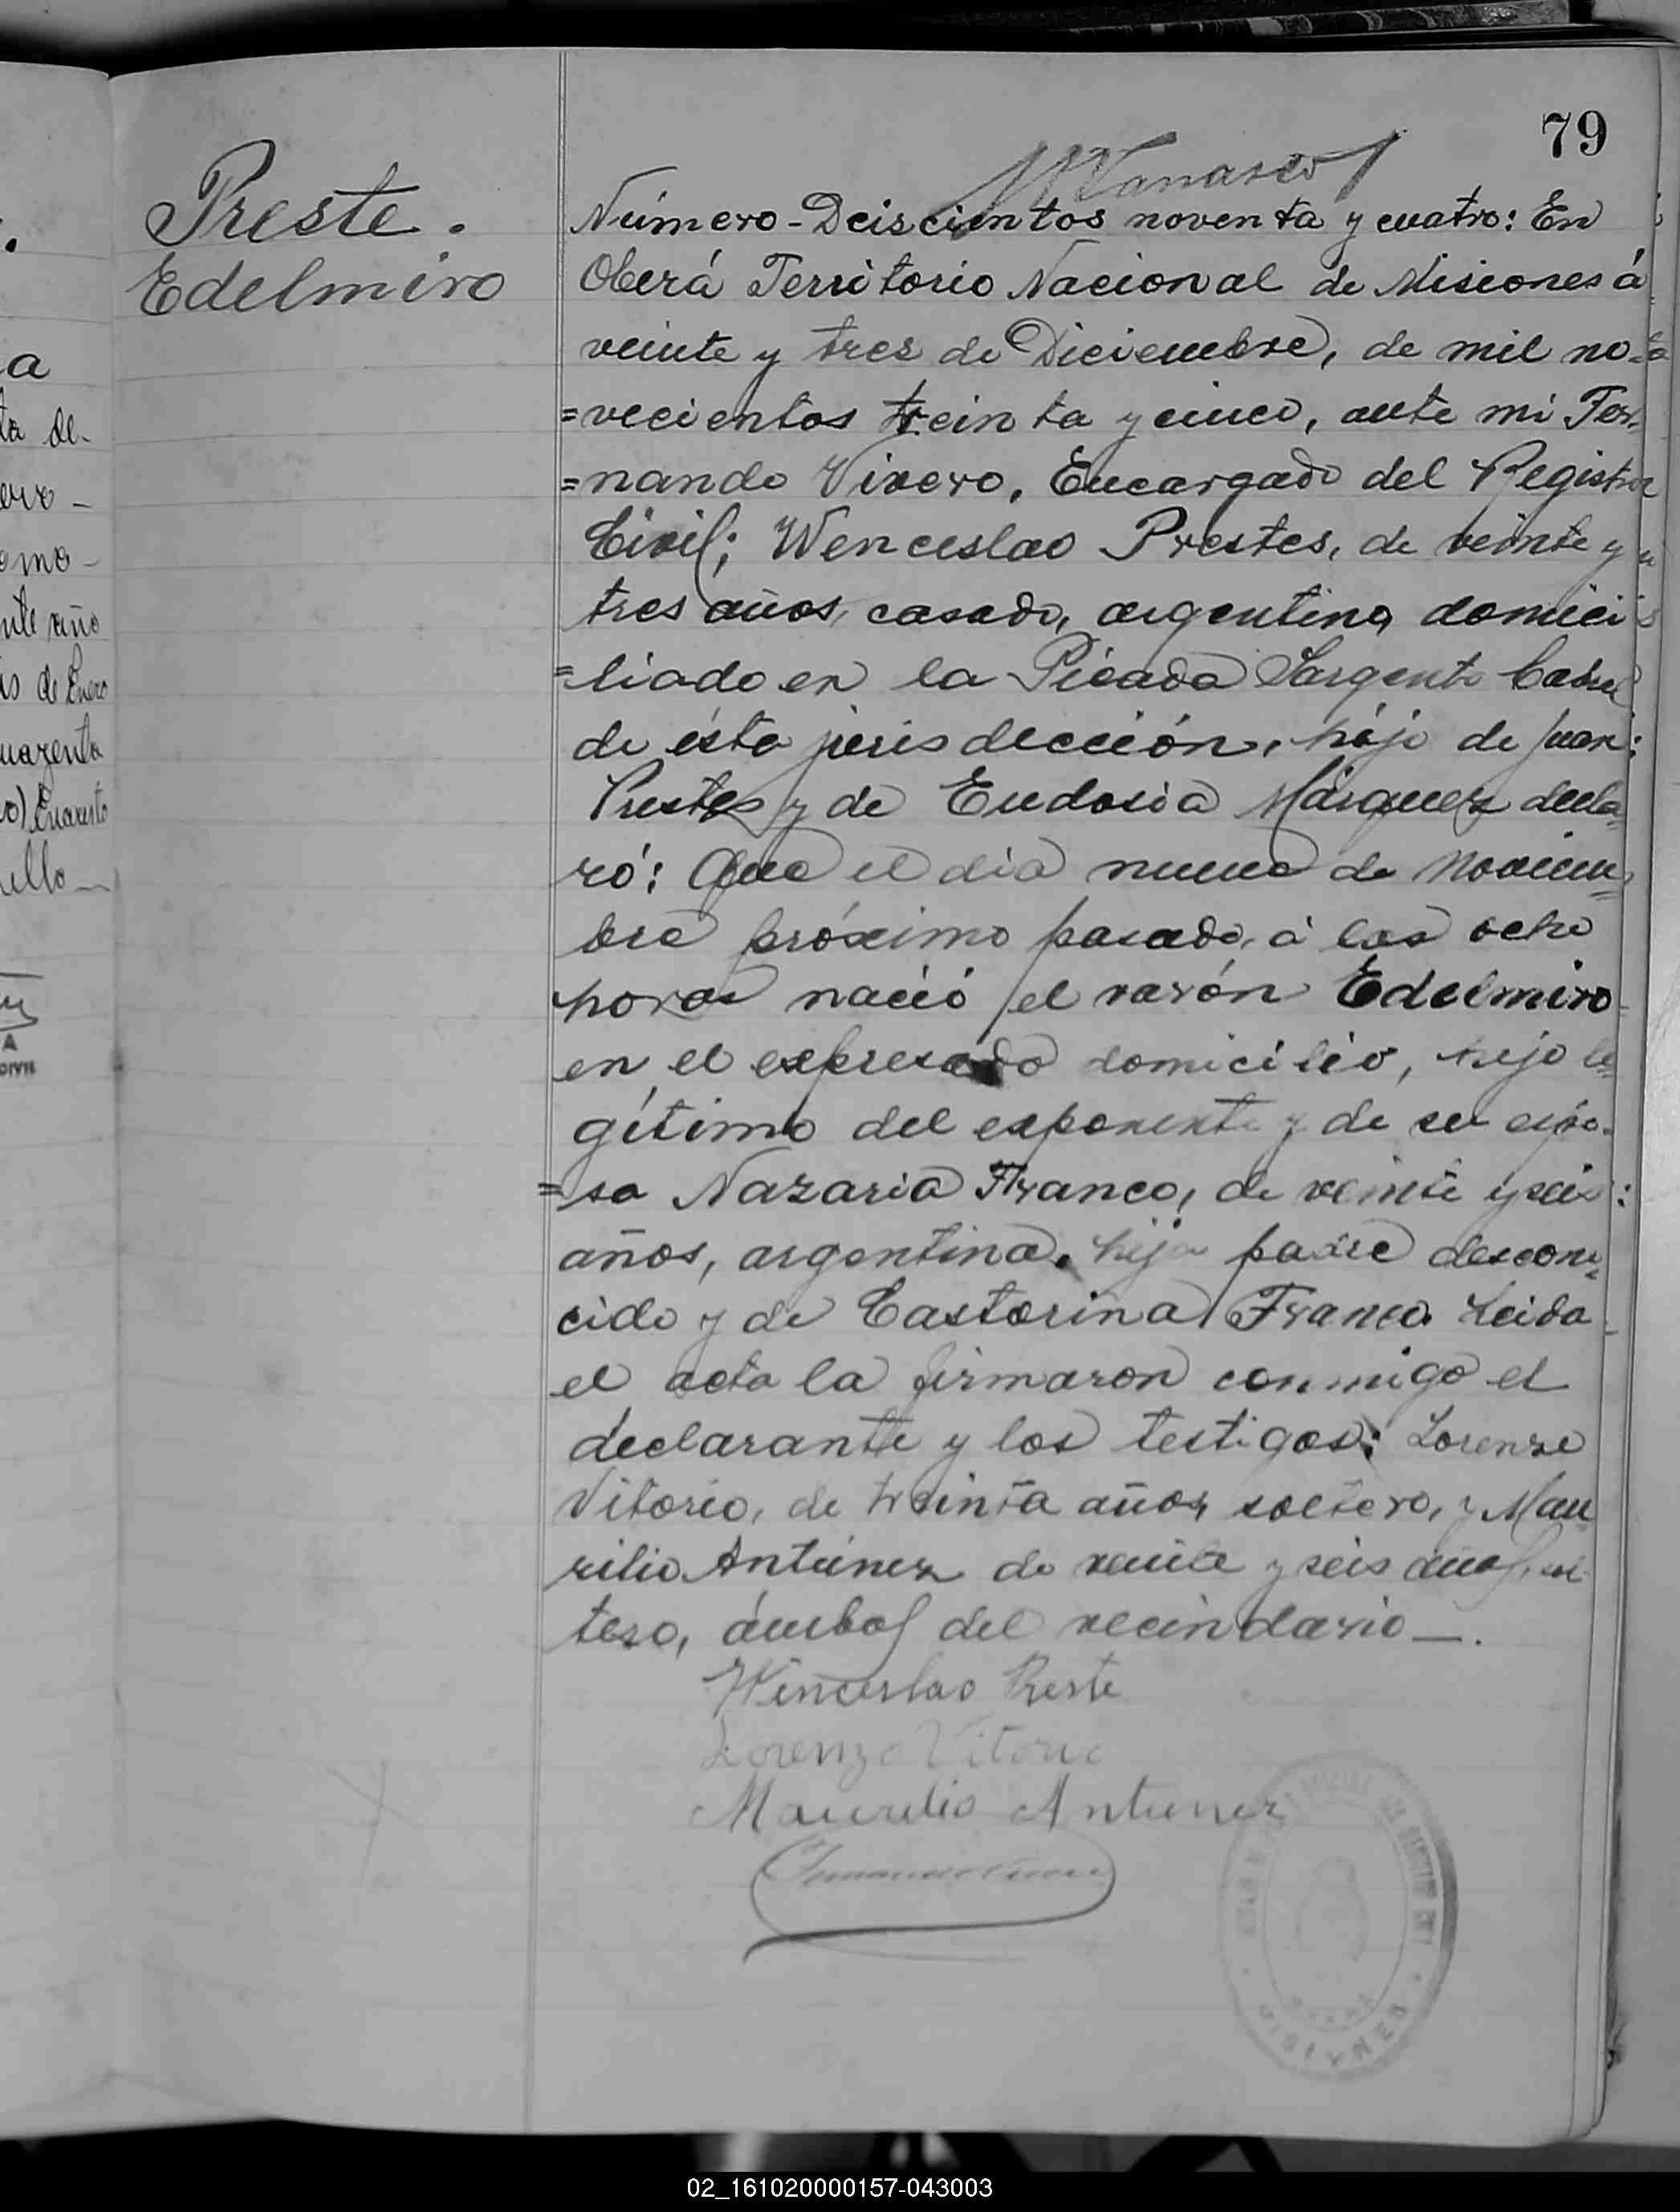 79
Preste.
Edelmiro
Número-Deiscientos noventa y cuatro: En
Oberá Territorio Nacional de Misiones á
veinte y tres de Diciembre, de mil no-
=vecientos treinta y cinco, ante mi Fer-
=nando Vivero, Encargado del Registro
Civil; Wenceslao Prestes, de veinte y
tres años, casado, argentino, domici
=liado en la Picada Sargento Cabral
de ésta jurisdección, hijo de Juan
Prestes y de Eudosia Márquez decla-
ró: Que el dia nueve de Noviem-
bre próximo pasado, á las ocho
horas nació el varón Edelmiro
en el expresado domicilio, hijo le-
gítimo del exponente y de su espo-
=sa Nazaria Franco, de veinte y seis
años, argentina, hija padre descono-
cido y de Castorina Franco. Leida
el acta la firmaron conmigo el
declarante y los testigos: Lorenzo
Vitorio, de treinta años, soltero, y Mau
rilio Antúnez de veinte y seis años, sol-
tero, ámbos del vecindario—.
Wenceslao Preste
Lorenzo Vitorio
Maurilio Antunez
MISIONES
a
ta de-
omo-
nte año
is de Enero
uarenta
ello—
A
CIVIL
02_161020000157-043003